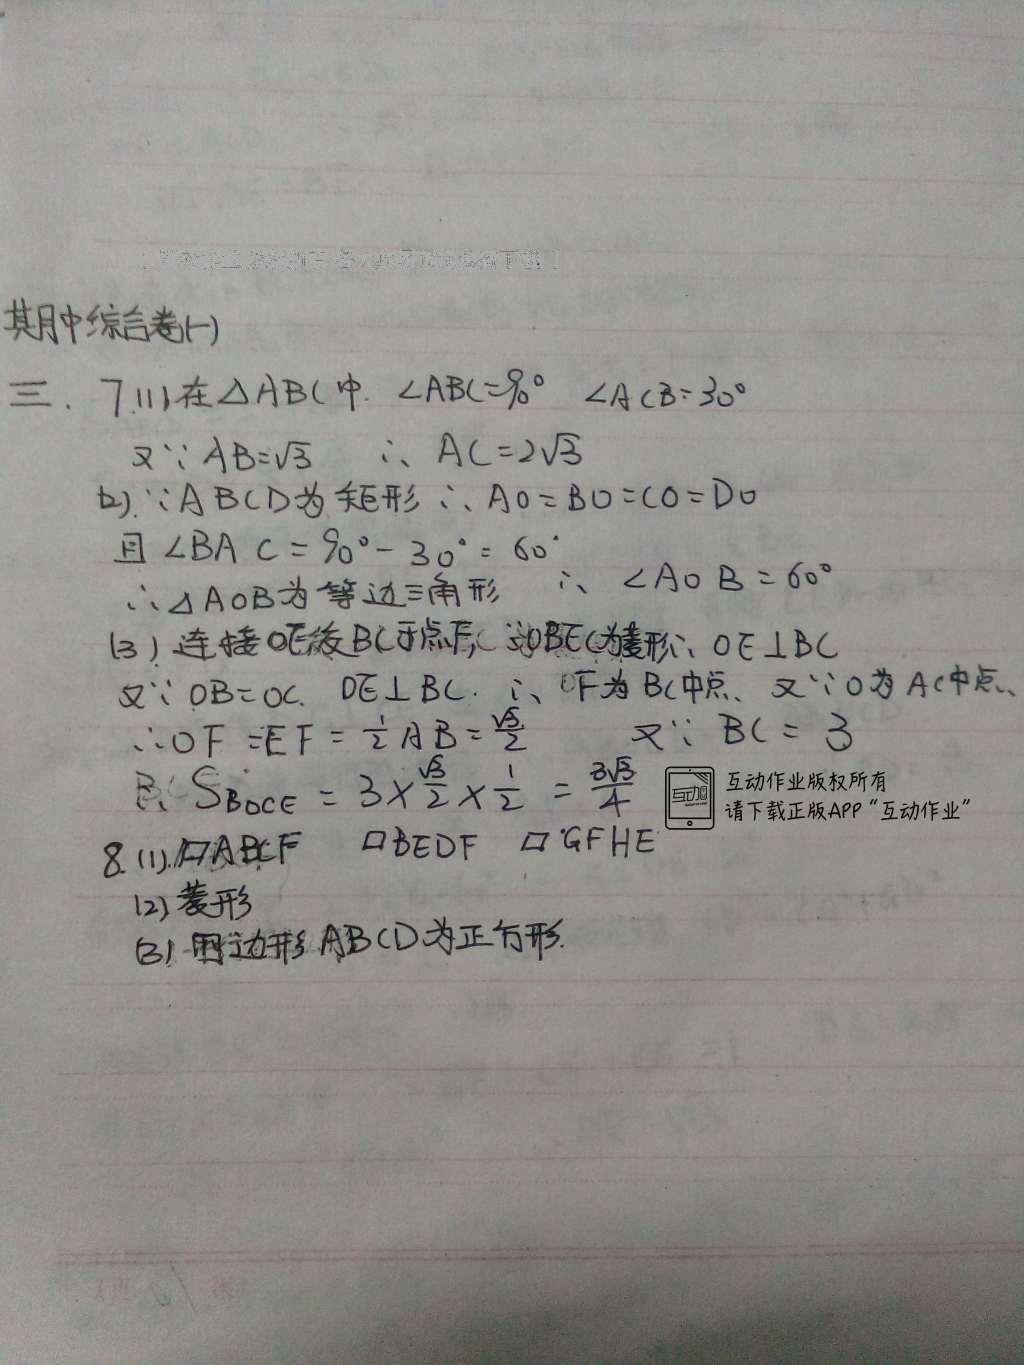 期中综合卷(一)
三. 7.(1)在△ABC中. ∠ABC=90° ∠ACB=30°
又∵AB=√3 ∴AC=2√3
(2).∵ABCD为矩形∴AO=BO=CO=DO
且∠BAC=90°-30°=60°
∴△AOB为等边三角形 ∴∠AOB=60°
(3)连接OE交BC于点F, ∵OBEC为菱形∴OE⊥BC
又∵OB=OC. OE⊥BC. ∴F为BC中点、又∵O为AC中点、
∴OF=EF=1/2AB=√3/2 又∵BC=3
∴S_BOCE=3×√3/2×1/2=3√3/4
互动作业版权所有
请下载正版APP“互动作业”
8.(1).▱ABCF ▱BEDF ▱GFHE
(2)菱形
(3)四边形ABCD为正方形.